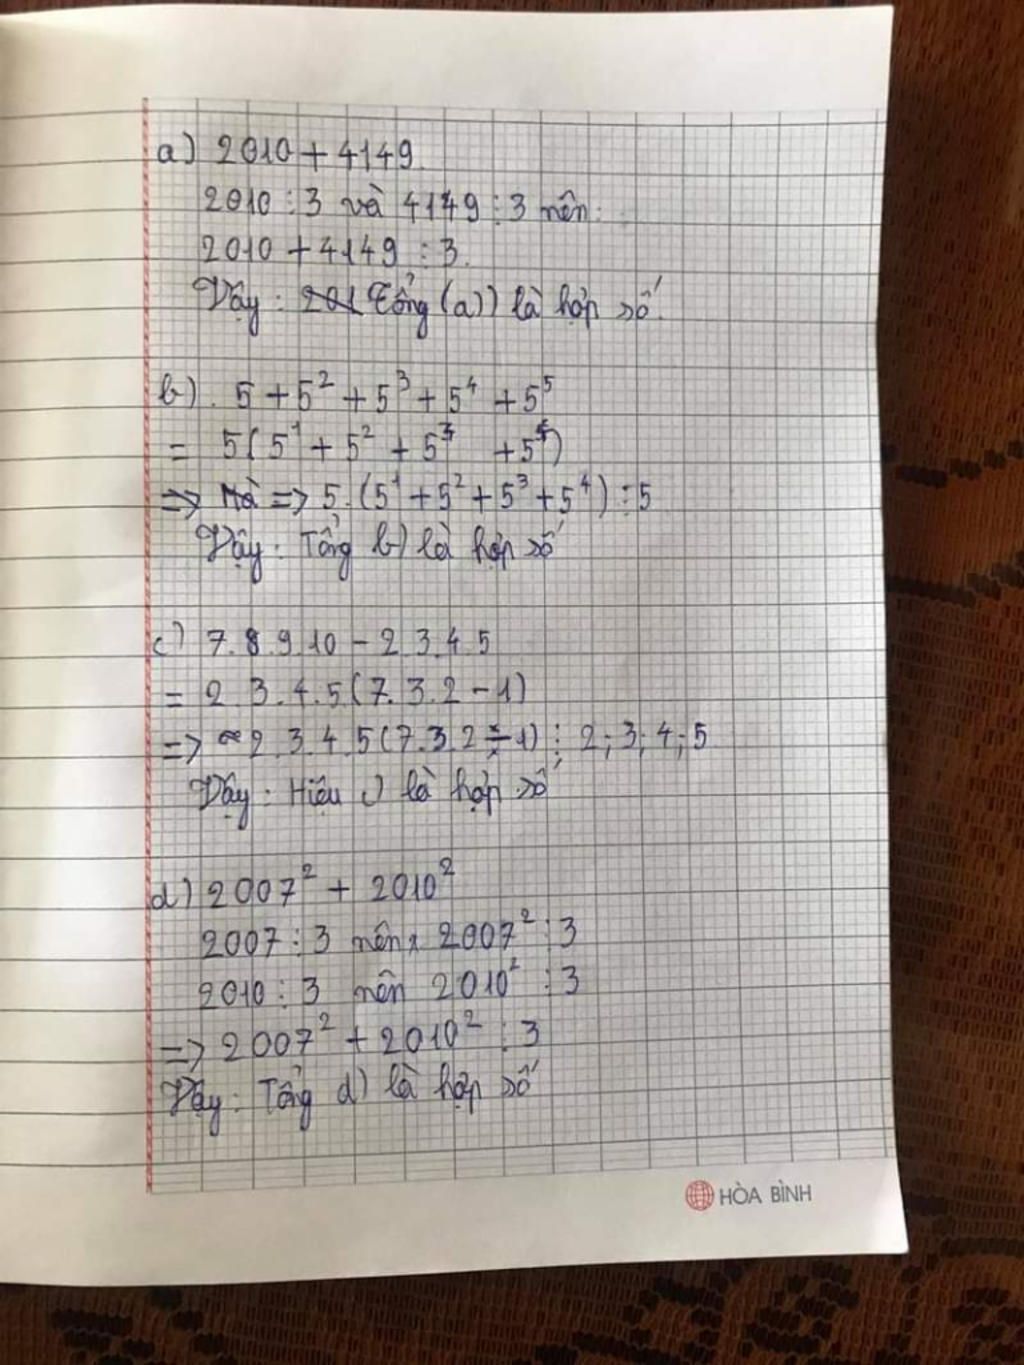 a) 2010 + 4149.
2010 ⋮ 3 và 4149 ⋮ 3 nên:
2010 + 4149 ⋮ 3.
Vậy: Tổng (a)) là hợp số.
b). 5 + 5² + 5³ + 5⁴ + 5⁵
= 5(5¹ + 5² + 5³ + 5⁴)
=> Mà => 5.(5¹ + 5² + 5³ + 5⁴) ⋮ 5
Vậy: Tổng b) là hợp số
c) 7.8.9.10 - 2.3.4.5
= 2.3.4.5(7.3.2 - 1)
=> 2.3.4.5(7.3.2 - 1) ⋮ 2; 3; 4; 5
Vậy: Hiệu c) là hợp số
d) 2007² + 2010²
2007 ⋮ 3 nên 2007² ⋮ 3
2010 ⋮ 3 nên 2010² ⋮ 3
=> 2007² + 2010² ⋮ 3
Vậy: Tổng d) là hợp số
HÒA BÌNH